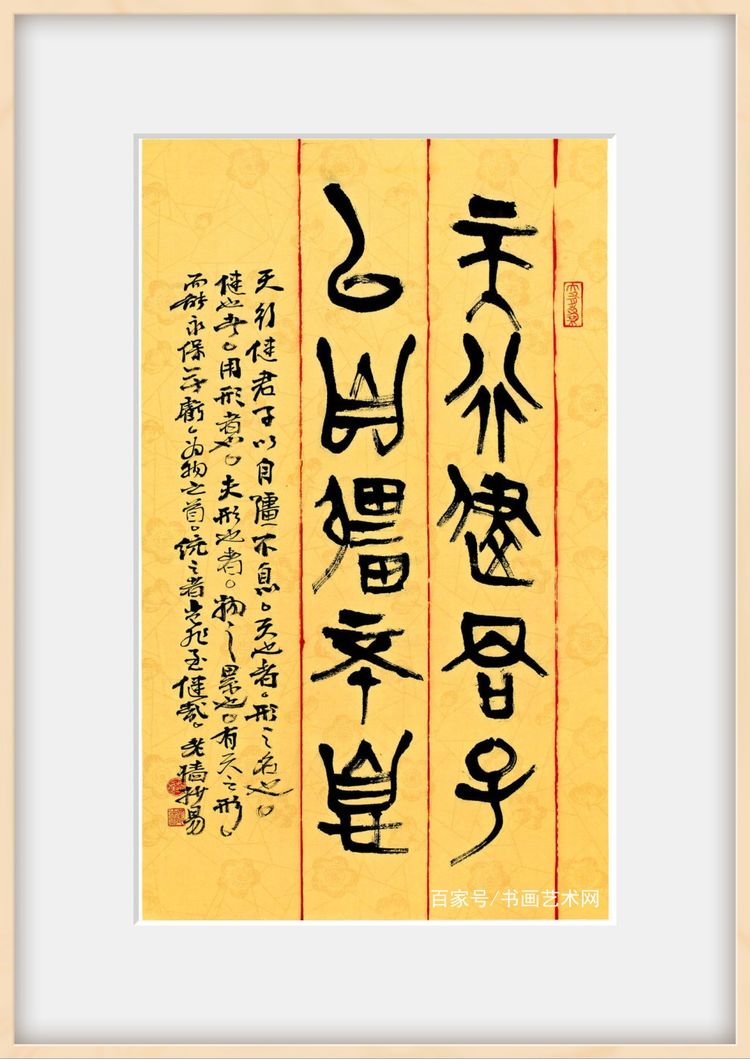 天行健君子
以自彊不息
天行健君子以自彊不息。天也者。形之名也。
健也者。用形者也。夫形也者。物之累也。有天之形。
而能永保无虧。为物之首。统之者岂非至健哉。老墙抄易
百家号/书画艺术网